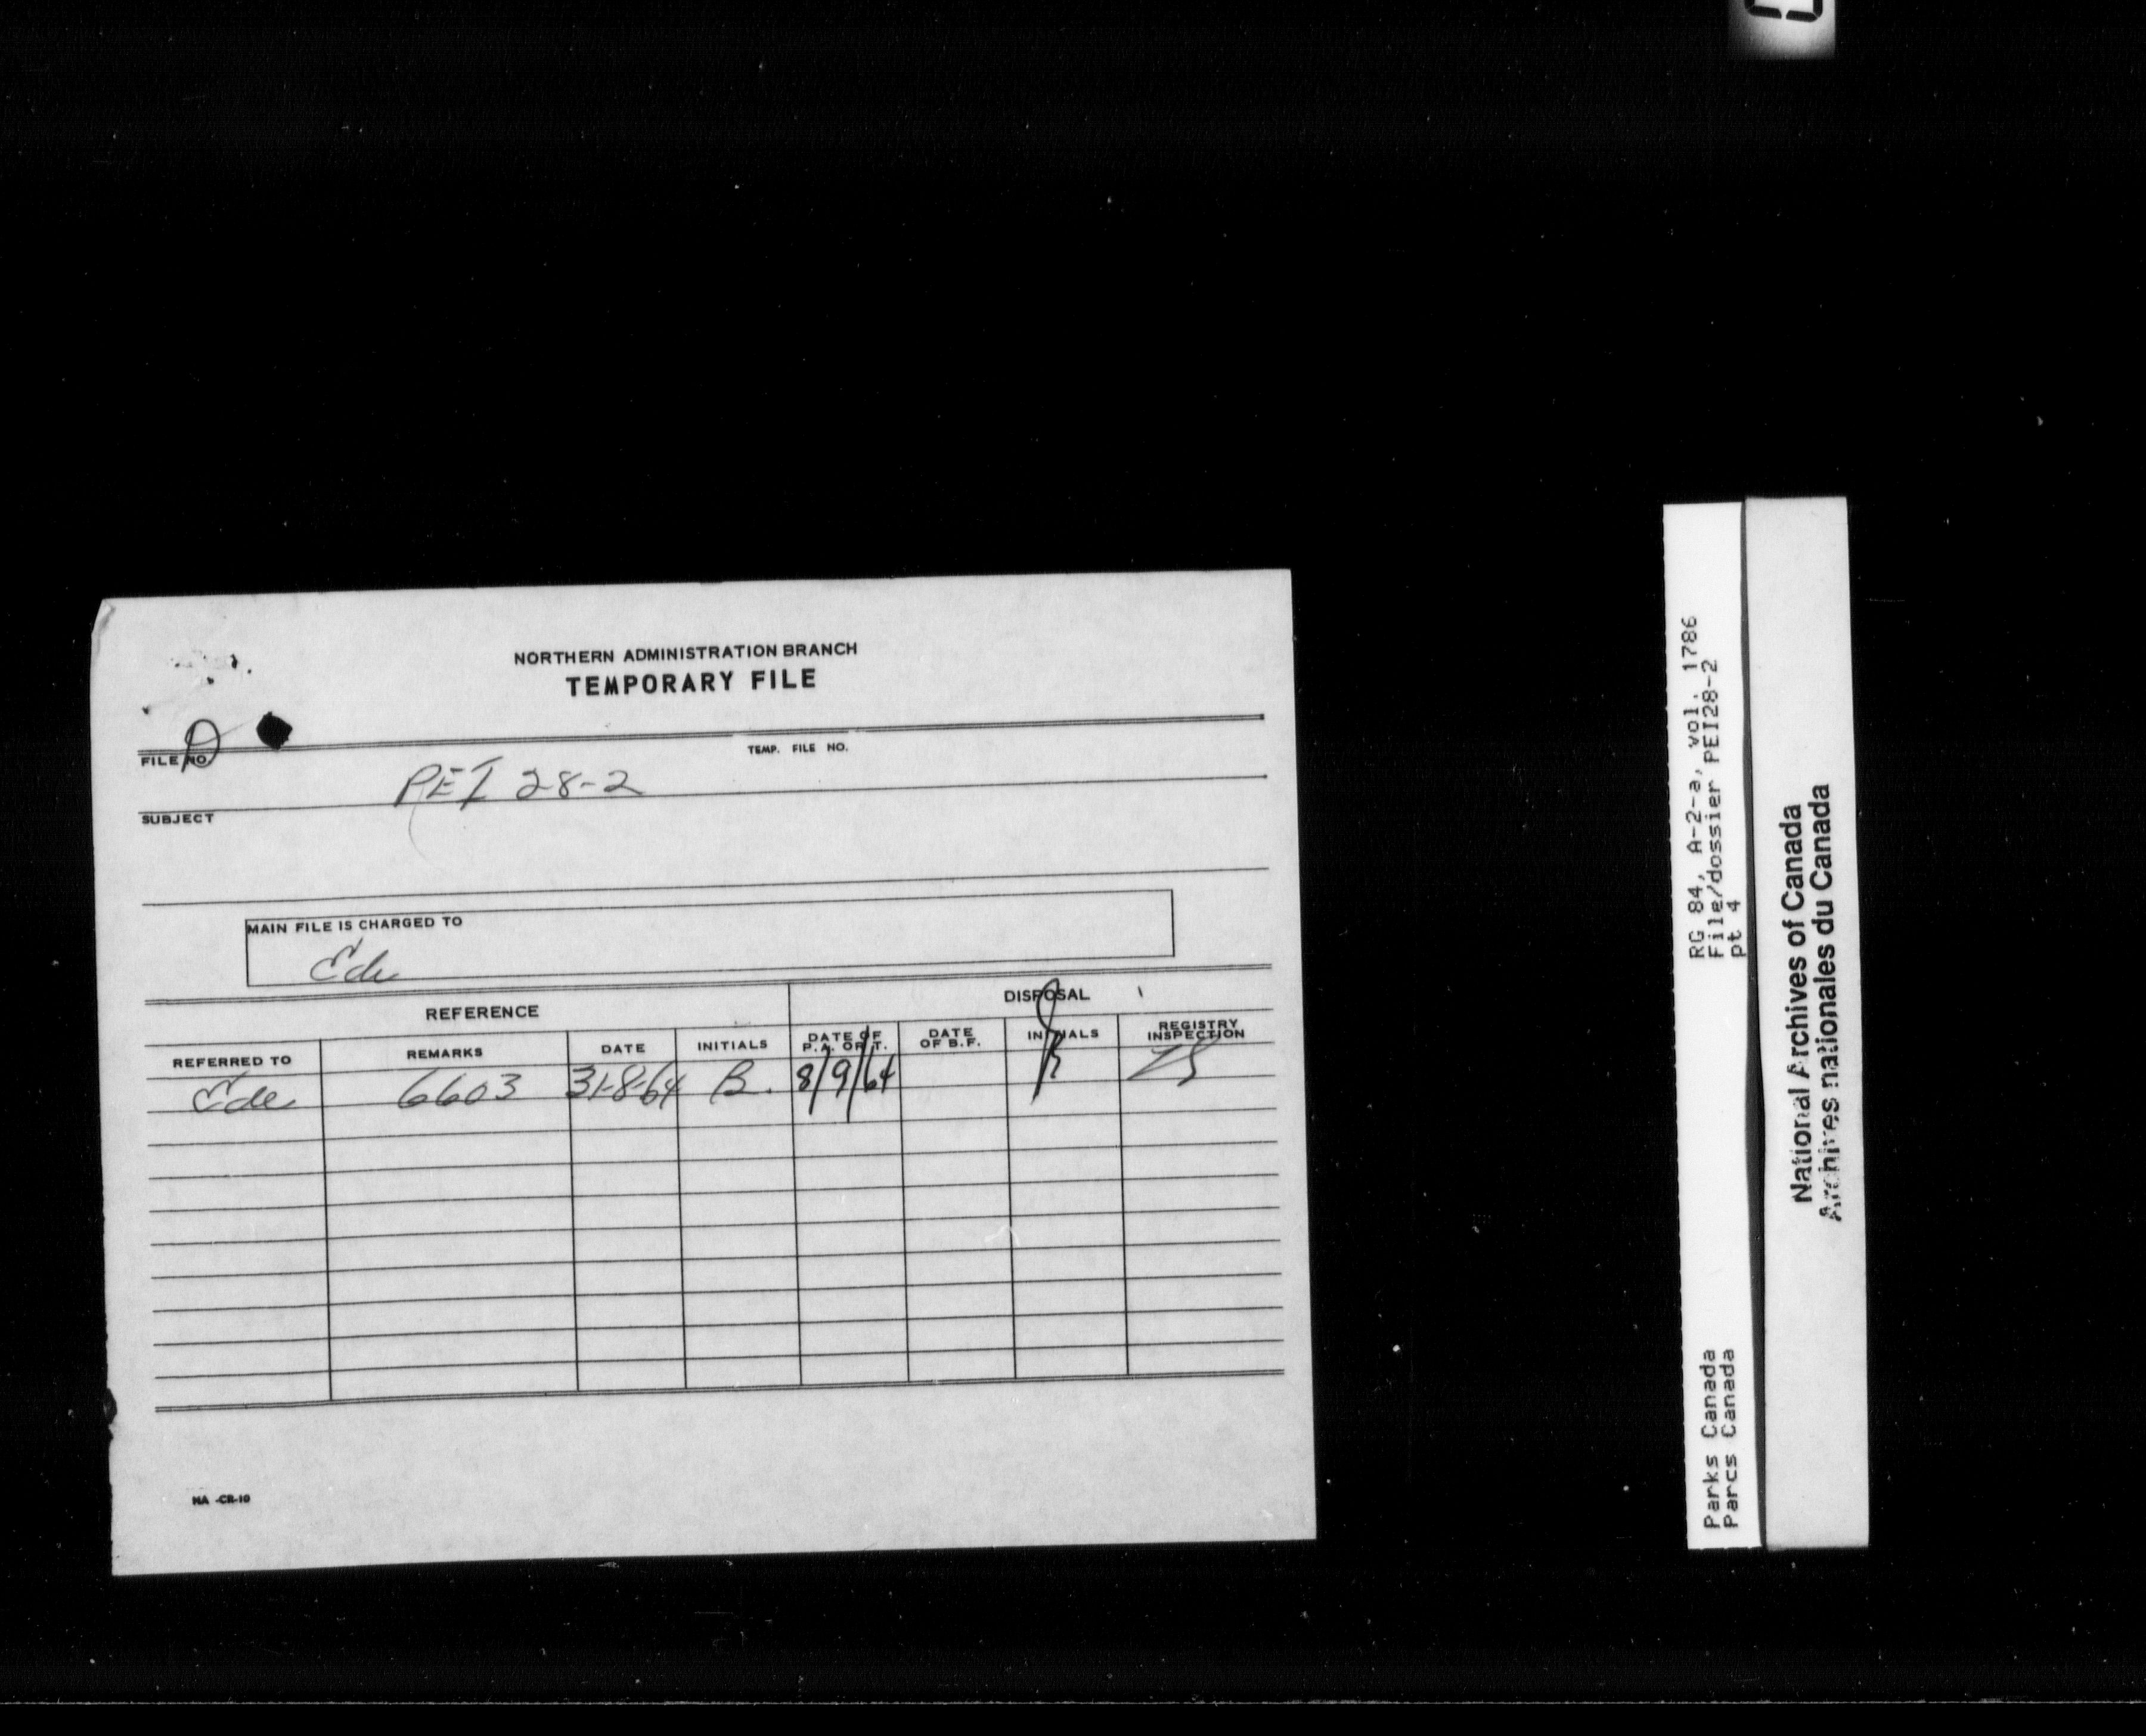 NORTHERN ADMINISTRATION BRANCH
TEMPORARY FILE
FILE NO.
TEMP. FILE NO.
PEI 28-2
SUBJECT
MAIN FILE IS CHARGED TO
REFERENCE
DISPOSAL
REFERRED TO REMARKS DATE INITIALS DATE OF P.A. OR T. DATE OF B.F. INITIALS REGISTRY INSPECTION
6603 31-8-64 B. 8/9/64
NA-CR-10
RG 84, A-2-a, vol. 1786
File/dossier PEI28-2
pt 4
Parks Canada
Parcs Canada
National Archives of Canada
Archives nationales du Canada